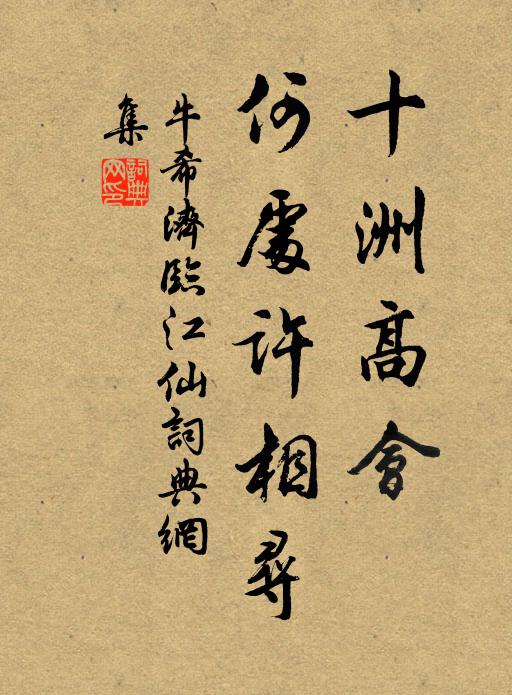 十洲高會
何處許相尋
牛希濟臨江仙詞典網
集
詞典網印